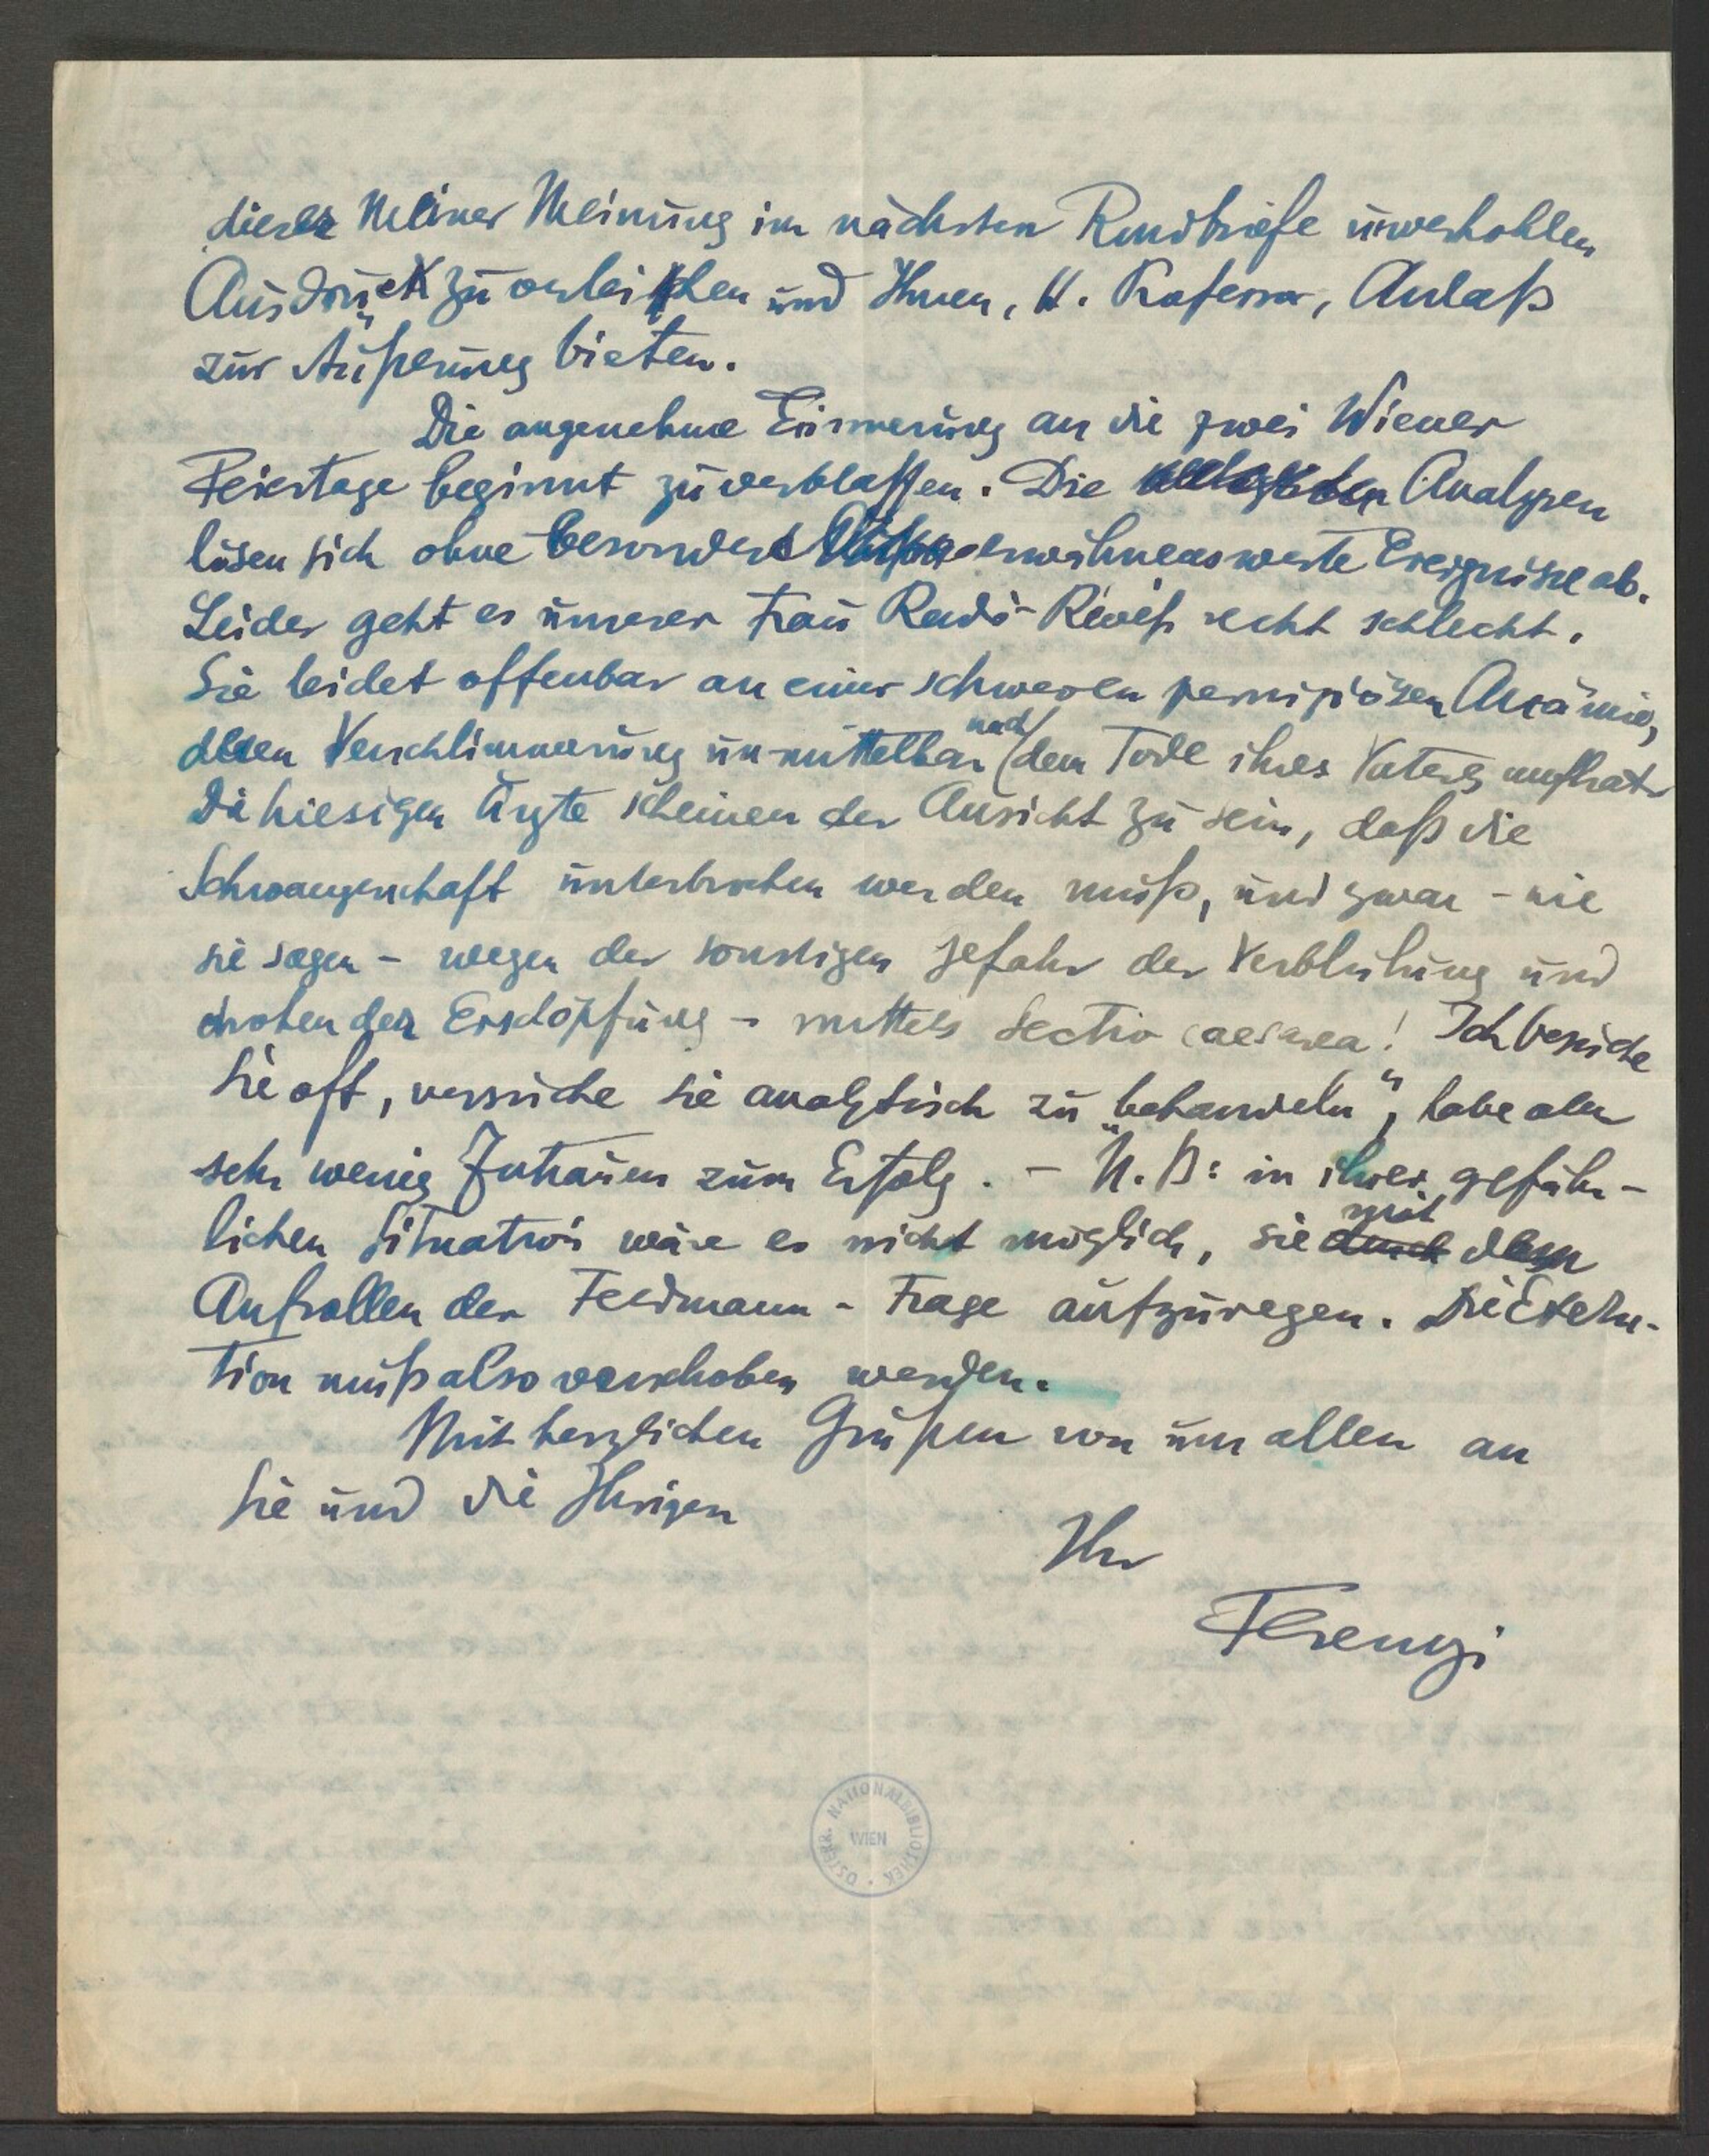 dieser meiner Meinung im nächsten Rundbriefe unverhohlen
Ausdruck zu verleihen und Ihnen, H. Professor, Anlaß
zur Äußerung bieten.
Die angenehme Erinnerung an die zwei Wiener
Feiertage beginnt zu verblassen. Die Analysen
lösen sich ohne besonders erwähnenswerte Ereignisse ab.
Leider geht es unserer Frau Radó-Révész recht schlecht.
Sie leidet offenbar an einer schweren perniziösen Anämie,
deren Verschlimmerung unmittelbar nach dem Tode ihres Vaters auftrat.
Die hiesigen Ärzte scheinen der Ansicht zu sein, daß die
Schwangerschaft unterbrochen werden muß, und zwar - wie
sie sagen - wegen der sonstigen Gefahr der Verblutung und
drohender Erschöpfung - mittels Sectio caesarea! Ich besuche
Sie oft, versuche sie analytisch zu „behandeln“, habe aber
sehr wenig Zutrauen zum Erfolg. - N.B: in ihrer gefähr-
lichen Situation wäre es nicht möglich, sie durch mit dem
Aufrollen der Feldmann-Frage aufzuregen. Die Exeku-
tion muß also verschoben werden.
Mit herzlichen Grüßen von uns allen an
Sie und die Ihrigen
Ihr
Ferenczi
ÖSTERR. NATIONALBIBLIOTHEK
WIEN